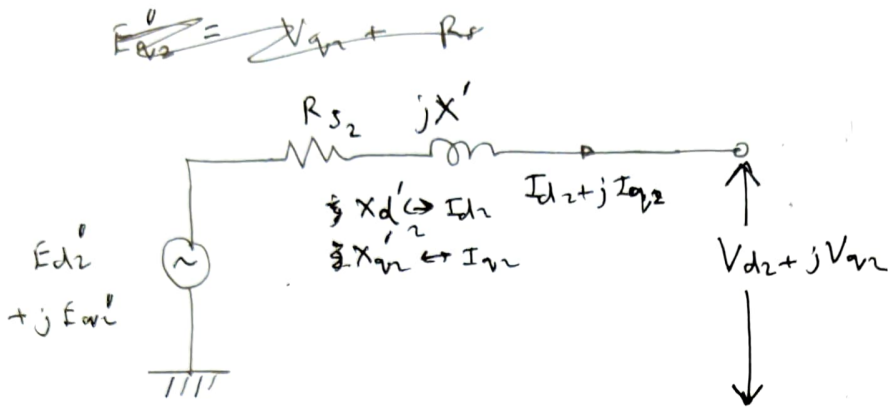 E'q2 = Vq2 + Rs
Rs2
jX'
Xd'2 ↔ Id2
Id2+jIq2
X'q2 ↔ Iq2
Ed2'
+jEq2'
~
Vd2+jVq2